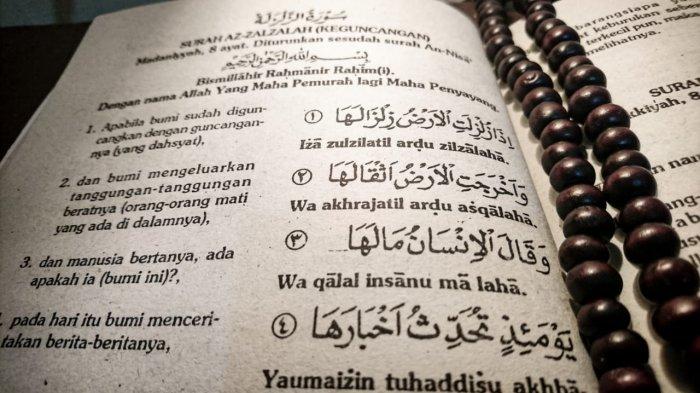 سُوْرَةُ الزَّلْزَلَةِ
SURAH AZ-ZALZALAH (KEGUNCANGAN)
Madaniyyah, 8 ayat. Diturunkan sesudah surah An-Nisā'
بِسْمِ اللهِ الرَّحْمٰنِ الرَّحِيْمِ
Bismillāhir Raḥmānir Raḥīm(i).
Dengan nama Allah Yang Maha Pemurah lagi Maha Penyayang.
1. Apabila bumi sudah digun-
cangkan dengan guncangan-
nya (yang dahsyat),
١ اِذَا زُلْزِلَتِ الْاَرْضُ زِلْزَالَهَا
Iżā zulzilatil arḍu zilzālahā.
2. dan bumi mengeluarkan
tanggungan-tanggungan
beratnya (orang-orang mati
yang ada di dalamnya),
٢ وَاَخْرَجَتِ الْاَرْضُ اَثْقَالَهَا
Wa akhrajatil arḍu aśqālahā.
3. dan manusia bertanya, ada
apakah ia (bumi ini)?,
٣ وَقَالَ الْاِنْسَانُ مَالَهَا
Wa qālal insānu mā lahā.
. pada hari itu bumi menceri-
takan berita-beritanya,
٤ يَوْمَئِذٍ تُحَدِّثُ اَخْبَارَهَا
Yaumaiżin tuḥaddiśu akhbā-
barangsiapa
keburukan se
terkecil pun,
melihatnya.
SURA
akkiyah, 8